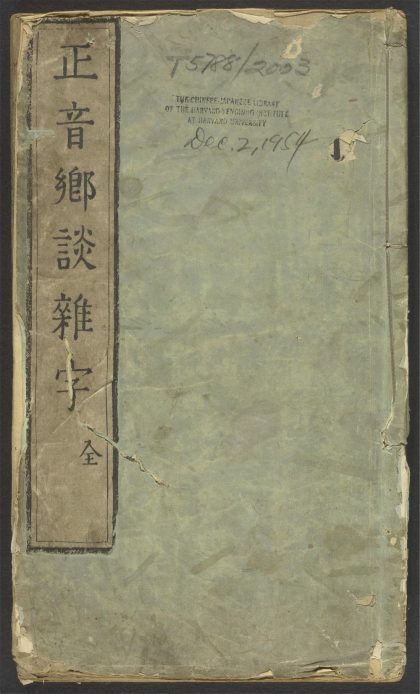 正音鄉談雜字
全
T5788/2003
THE CHINESE-JAPANESE LIBRARY
OF THE HARVARD-YENCHING INSTITUTE
AT HARVARD UNIVERSITY
Dec. 2, 1954
1